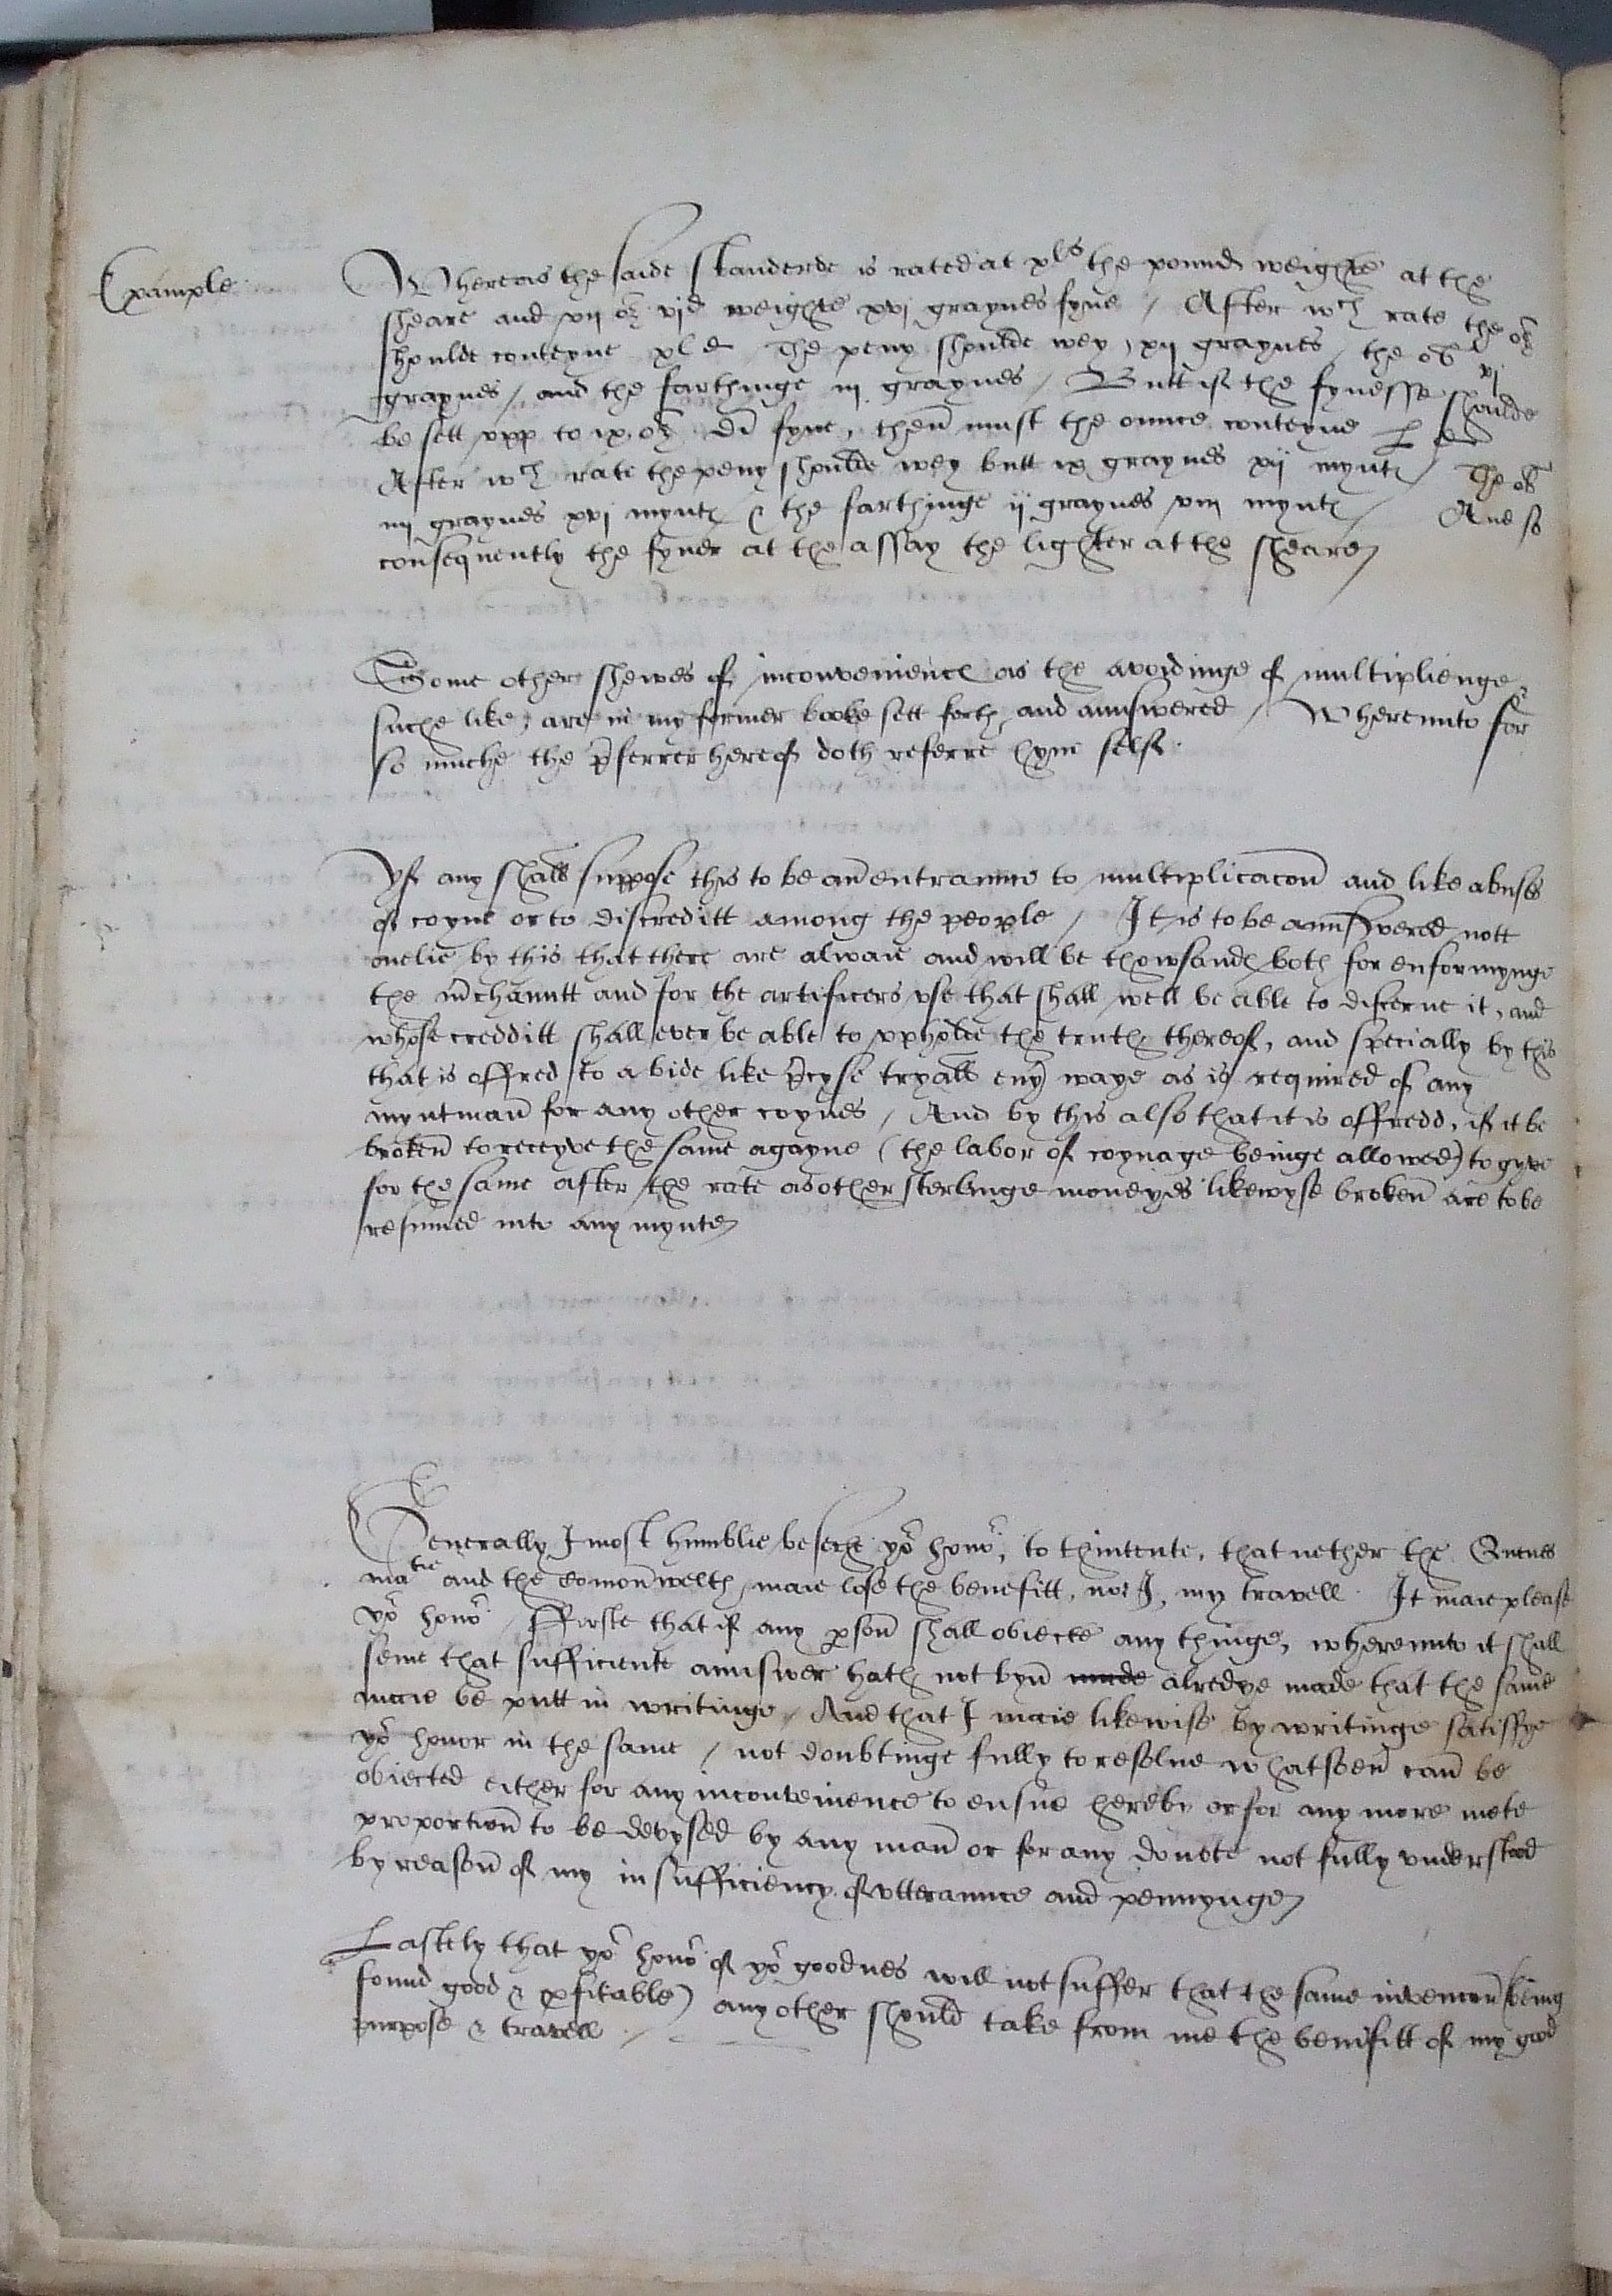 Example
Whereas the saide standerde is rated at xls the pound weighte at the
sheare and vii oz vjd weighte xvj graynes fyne / After wch rate the oz
shoulde conteyne xl d The peny shoulde wey xij graynes / the ob vj
graynes / and the farthinge iij graynes / Butt if the fynesse shoulde
be sett vpp to ix oz di fyne, then must the ounce conteyne L d
After wch rate the peny shoulde wey butt ix graynes xij mynts / The ob
iiij graynes xvj mynts & the farthinge ij graynes viij mynts / And so
consequently the fyner at the assay the lighter at the sheare
Some other shewes of inconvenience as the avoidinge of multiplienge &
suche like, are in my former booke sett forth and aunswered / Whereunto for
so muche the pferrer hereof doth referre hym self.
Yf any shall suppose this to be an entraunce to multiplicacon and like abuses
of coyne or to discreditt among the people / It is to be aunswered nott
onelie by this that there are alwaie and will be thowsands both for enformynge
the mchauntt and for the artificers vse that shall well be able to discerne it, and
whose credditt shall ever be able to vpholde the truth thereof, and specially by this
that is offred to abide like pcyse tryall eny waye as is required of any
myntman for any other coynes / And by this also that it is offredd, if it be
broken to receyve the same agayne (the labor of coynage beinge allowed) to gyve
for the same after the rate as other sterlinge moneyes likewyse broken are to be
resumed into any mynte
Generally I most humblie beseche yor honor, to thintente, that nether the Quenes
matie and the comonwelth maie lose the benefitt, nor I, my travell. It maie please
yor honor / Firste that if any pson shall obiecte any thinge, whereunto it shall
seme that sufficiente aunswer hath not byn made alredye made that the same
maie be putt in writinge / And that I maie likewise by writinge satisfye
yor honor in the same / not doubtinge fully to resolue whatsoeu can be
obiected either for any inconvenience to ensue hereby or for any more mete
proportion to be devysed by any man or for any doubte not fully vnderstood
by reason of my insufficiency of vtteraunce and pennynge
Lastely that yor honor of yor goodnes will not suffer that the same invencon (being
found good & pfitable) any other should take from me the benifitt of my good
purpose & travell